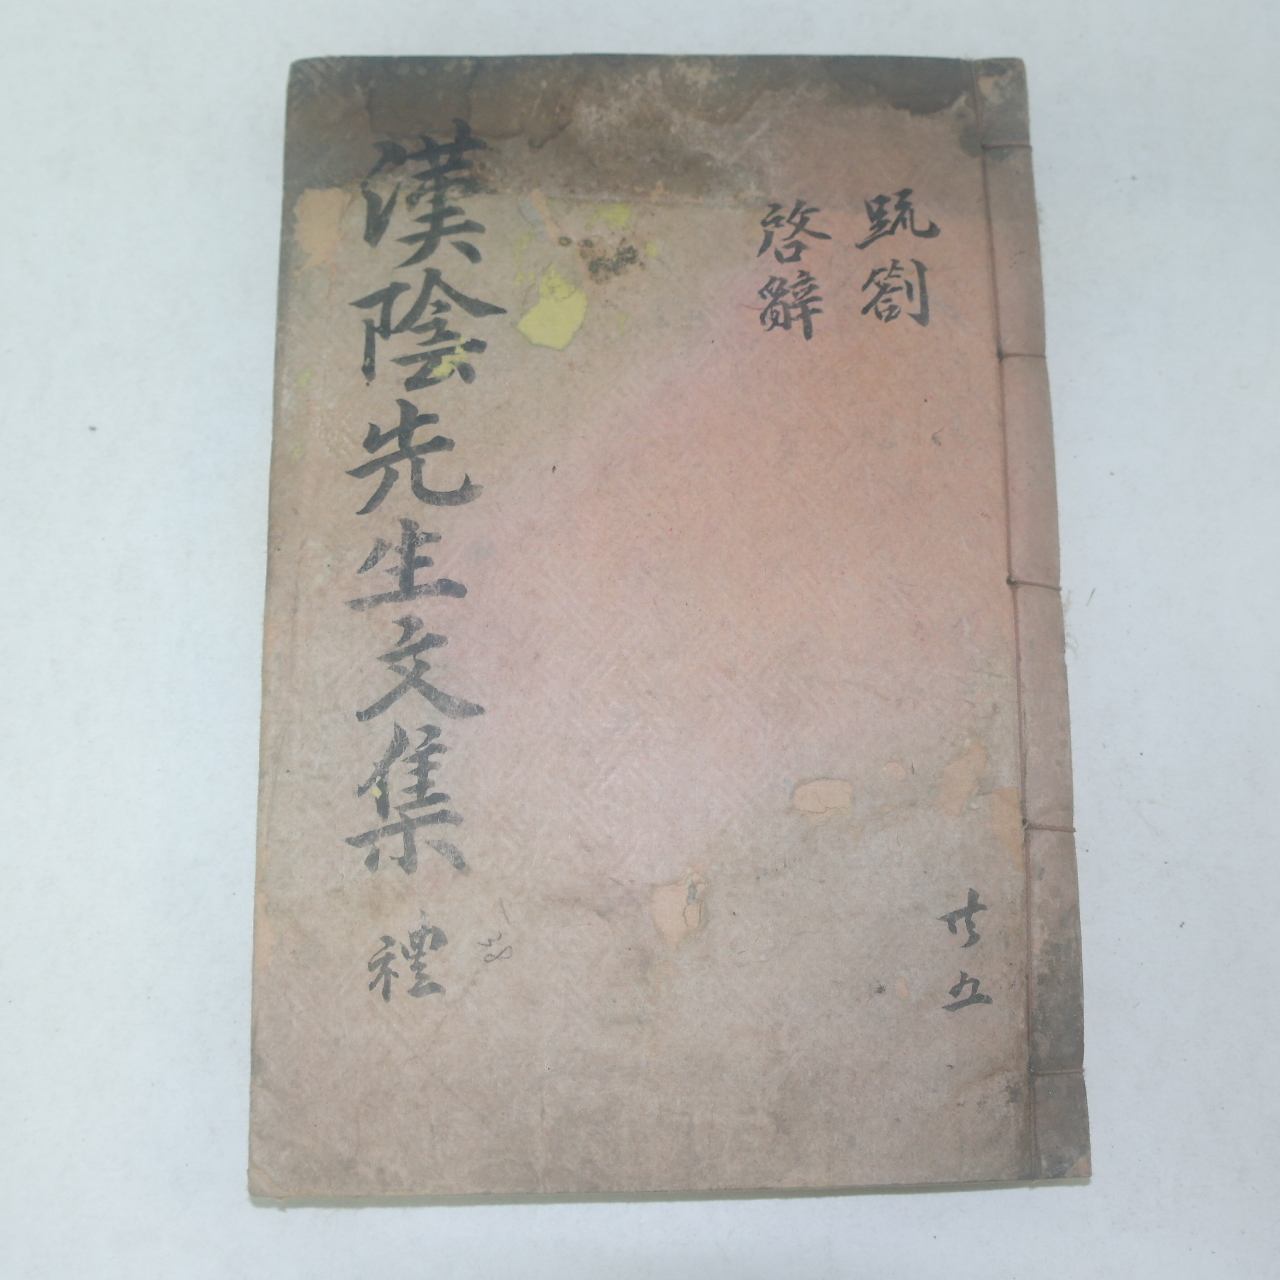 疏劄
啓辭
共五
漢陰先生文集 禮